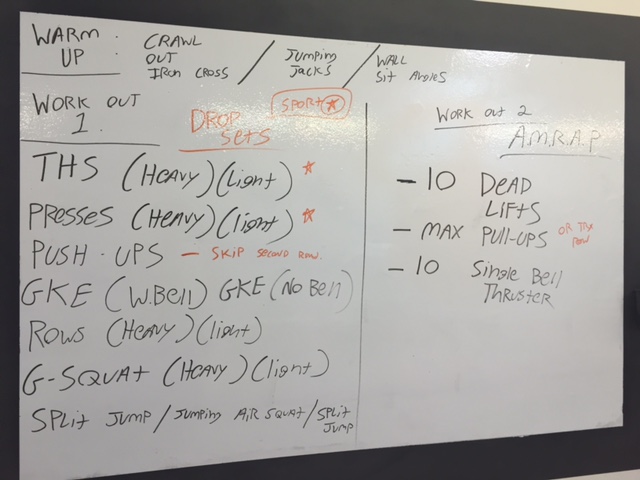 WARM UP
CRAWL OUT IRON CROSS / JUMPING JACKS / WALL SIT ANGLES
WORK OUT 1
DROP SETS
SPORT ★
THS (HEAVY) (Light) ★
PRESSES (HEAVY) (light) ★
PUSH-UPS – SKIP SECOND ROW.
GKE (W.Bell) GKE (No Bell)
ROWS (HEAVY) (light)
G-SQUAT (HEAVY) (light)
SPLIT JUMP / JUMPING AIR SQUAT / SPLIT JUMP
WORK OUT 2
A.M.R.A.P
– 10 DEAD LIFTS
– MAX PULL-UPS OR TRX ROW
– 10 Single Bell THRUSTER